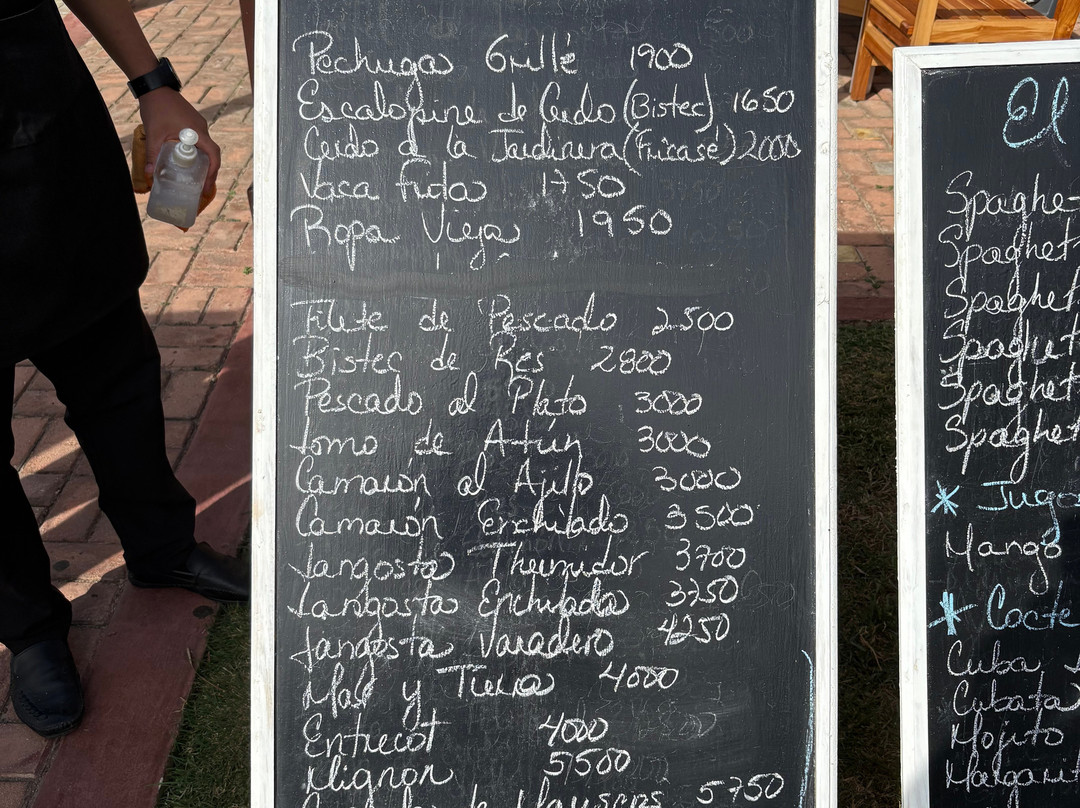 Pechuga Grillé 1900
Escalopine de Cerdo (Bistec) 1650
Cerdo a la Jardinera (Fricasé) 2000
Vaca frita 1750
Ropa Vieja 1950
Filete de Pescado 2500
Bistec de Res 2800
Pescado al Plato 3000
Lomo de Atún 3000
Camarón al Ajillo 3000
Camarón Enchilado 3500
Langosta Thermidor 3700
Langosta Enchilada 3750
Langosta Varadero 4250
Mar y Tierra 4000
Entrecot 4000
Mignon 5500
5750
El
Spaghe
Spaghet
Spaghet
Spaghet
Spaghet
Spaghet
* Jugo
Mango
* Cocte
Cuba
Cubata
Mojito
Margarit